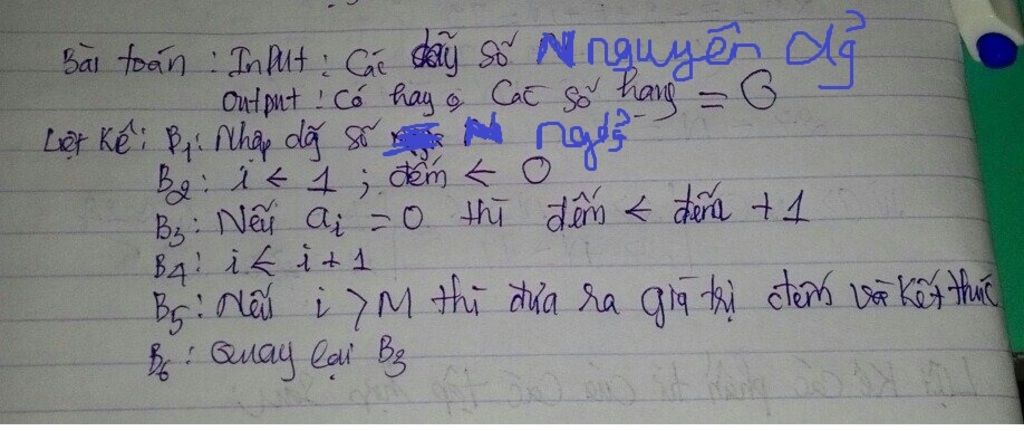 Bài toán : InPut : Các dãy số N nguyên dg̉
Output : Có hay o Các số hạng = 0
Liệt kê : B1 : Nhập dãy số N ngdg̉
B2 : i ← 1 ; đếm ← 0
B3 : Nếu ai = 0 thì đếm ← đếm + 1
B4 : i ← i + 1
B5 : Nếu i > N thì đưa ra giá trị đếm và kết thúc
B6 : Quay lại B3